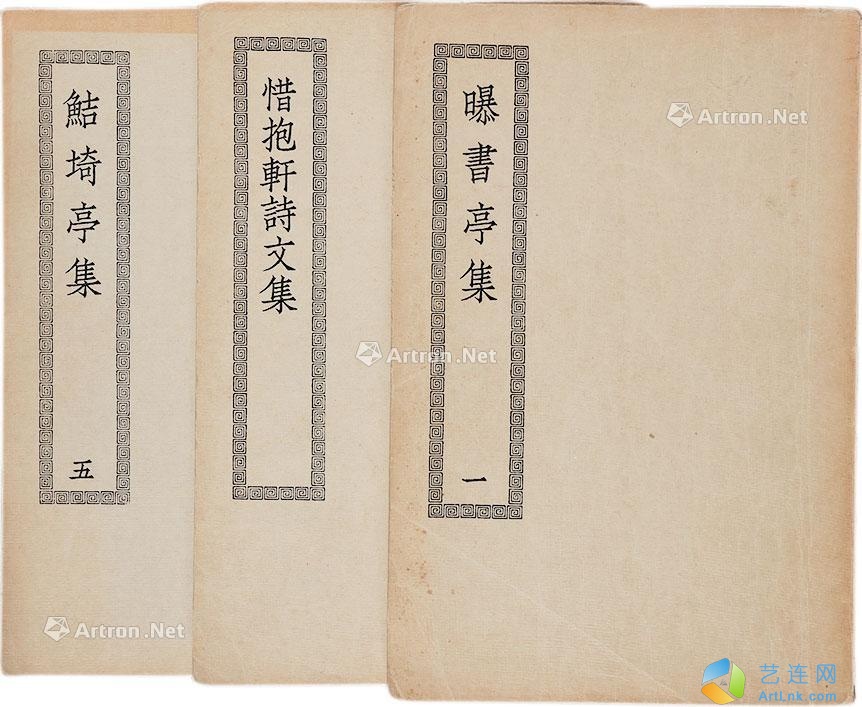 曝書亭集
一
惜抱軒詩文集
鮚埼亭集
五
Artron.Net
Artron.Net
Artron.Net
艺连网
ArtLnk.com